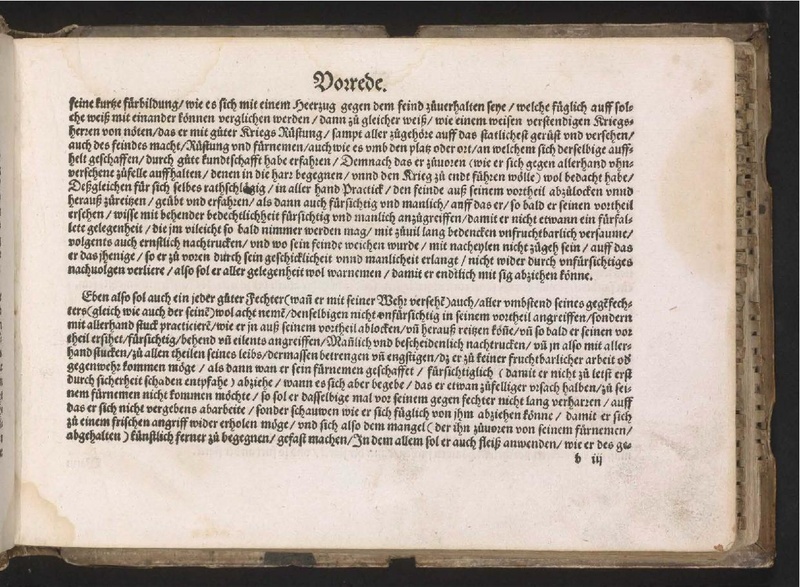 Vorrede.
keine kurtze fürbildung/ wie es sich mit einem Heerzug gegen dem feind zůuerhalten seye/ welche füglich auff sol-
che weiß mit einander können verglichen werden/ dann zů gleicher weiß/ wie einem weisen verstendigen Kriegs-
herren von nöten/ das er mit gůter Kriegs Rüstung/ sampt aller zůgehöre auff das statlichest gerüst vnd versehen/
auch des feindes macht/ Rüstung vnd fürnemen/ auch wie es vmb den platz oder ort/ an welchem sich derselbige auff-
helt geschaffen/ durch gůte kundtschafft habe erfahren/ Demnach das er zůuoren (wie er sich gegen allerhand vhn-
versehene zůfelle auffhalten/ denen in die harr begegnen/ vnnd den Krieg zů endt führen wölle) wol bedacht habe/
Deßgleichen für sich selbes rathschlägig/ in aller hand Practick/ den feinde auß seinem vortheil abzůlocken vnnd
herauß zůreitzen/ geübt vnd erfahren/ als dann auch fürsichtig vnd manlich/ auff das er/ so bald er seinen vortheil
ersehen/ wisse mit behender bedechtlichheit fürsichtig vnd manlich anzůgreiffen/ damit er nicht etwann ein fürfal-
lete gelegenheit/ die jm vileicht so bald nimmer werden mag/ mit zůuil lang bedencken vnfruchtbarlich versaume/
volgents auch ernstlich nachtrucken/ vnd wo sein feinde weichen wurde/ mit nacheylen nicht zůgeh sein/ auff das
er das jhenige/ so er zů voren durch sein geschicklicheit vnnd manlicheit erlangt/ nicht wider durch vnfürsichtiges
nachuolgen verliere/ also sol er aller gelegenheit wol warnemen/ damit er endtlich mit sig abziehen könne.
Eben also sol auch ein jeder gůter Fechter (wañ er mit seiner Wehr versehẽ) auch/ aller vmbstend seines gegẽfech-
ters (gleich wie auch der seinẽ) wol acht nemẽ/ denselbigen nicht vnfürsichtig in seinem vortheil angreiffen/ sondern
mit allerhand stuck practicierẽ/ wie er jn auß seinem vortheil ablocken/ vñ herauß reitzen köñe/ vñ so bald er seinen vor
theil ersihet/ fürsichtig/ behend vñ eilents angreiffen/ Mañlich vnd bescheidenlich nachtrucken/ vñ jn also mit aller-
hand stucken/ zů allen theilen seines leibs/ dermassen betrengen vñ engstigen/ dz er zů keiner fruchtbarlicher arbeit od̕
gegenwehr kommen möge/ als dann wan er sein fürnemen geschaffet/ fürsichtiglich (damit er nicht zů letst erst
durch sicherheit schaden entpfahe) abziehe/ wann es sich aber begebe/ das er etwan zůfelliger vrsach halben/ zů sei-
nem fürnemen nicht kommen möchte/ so sol er dasselbige mal vor seinem gegen fechter nicht lang verharren/ auff
das er sich nicht vergebens abarbeite/ sonder schauwen wie er sich füglich von jhm abziehen könne/ damit er sich
zů einem frischen angriff wider erholen möge/ vnd sich also dem mangel (der ihn zůuoren von seinem fürnemen/
abgehalten) künstlich ferner zů begegnen/ gefast machen/ In dem allem sol er auch fleiß anwenden/ wie er des ge-
b iij